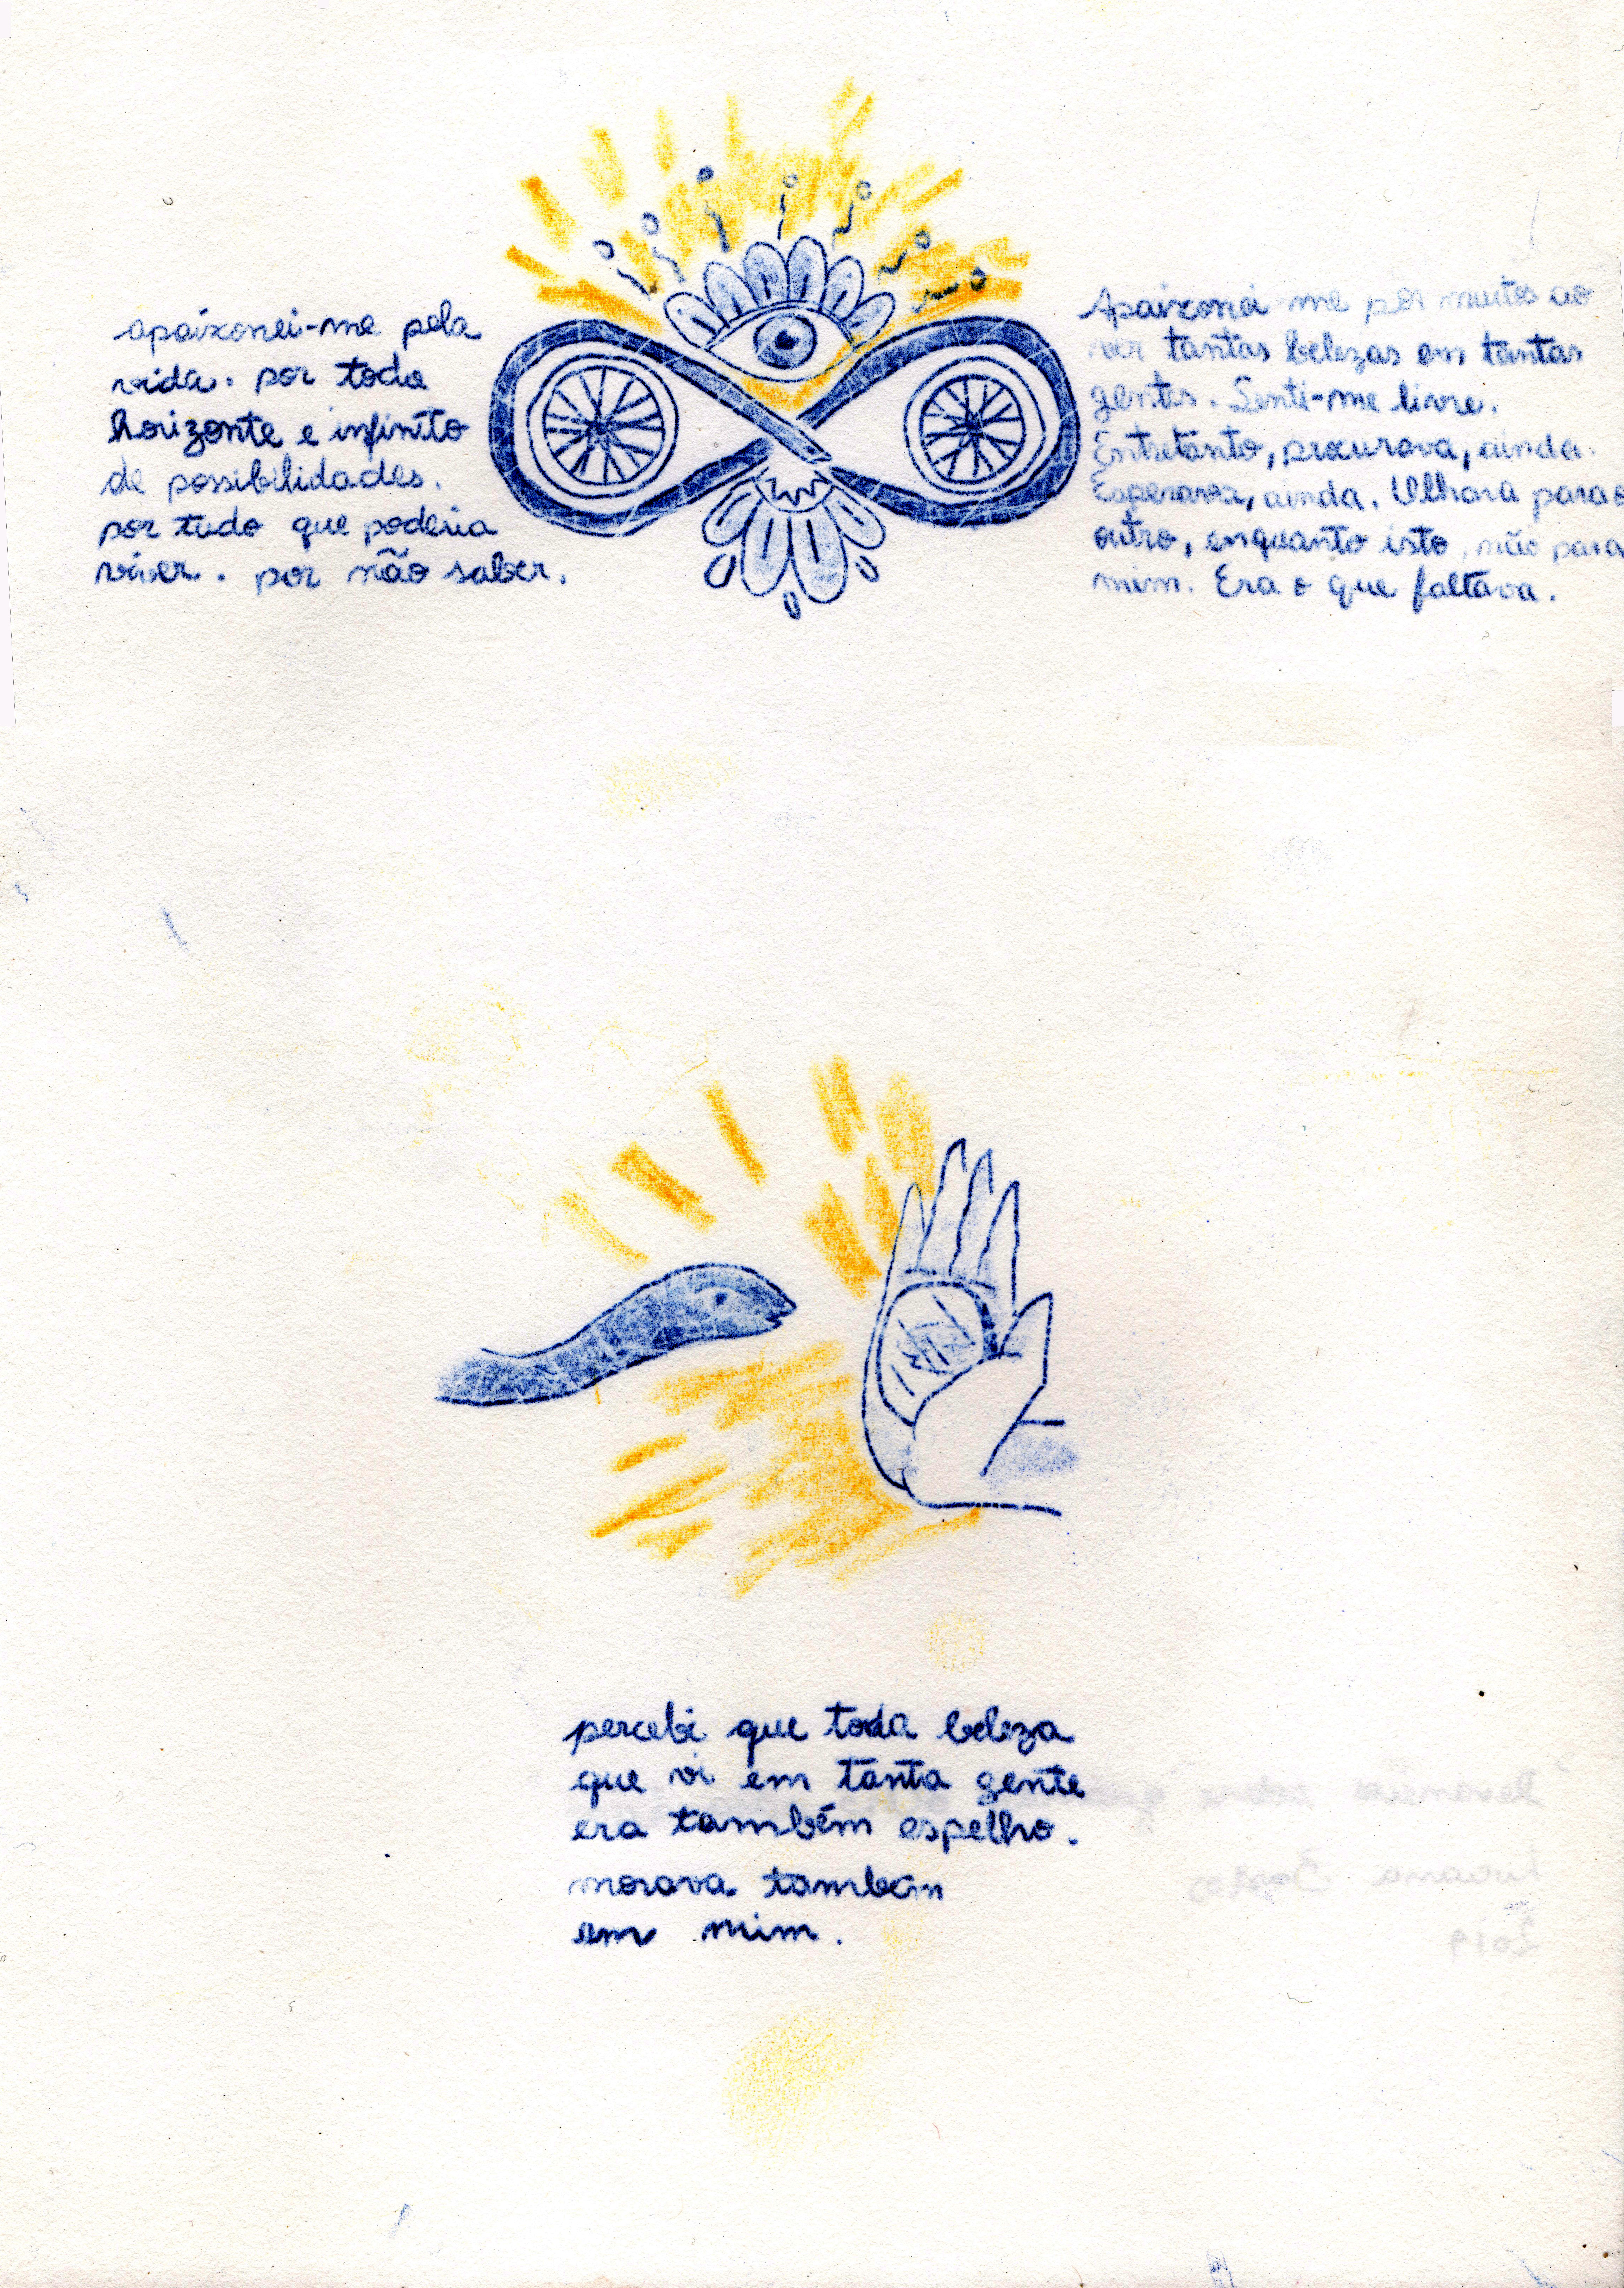 apaixonei-me pela
vida. por todo
horizonte e infinito
de possibilidades.
por tudo que poderia
viver. por não saber.
Apaixonei me por muitos ao
ver tantas belezas em tantas
gentes. Senti-me livre.
Entretanto, procurava, ainda.
Esperava, ainda. Olhava para o
outro, enquanto isto, não para
mim. Era o que faltava.
percebi que toda beleza
que vi em tanta gente
era também espelho.
morava também
em mim.
Devaneios sobre
Luciana Bastos
2019